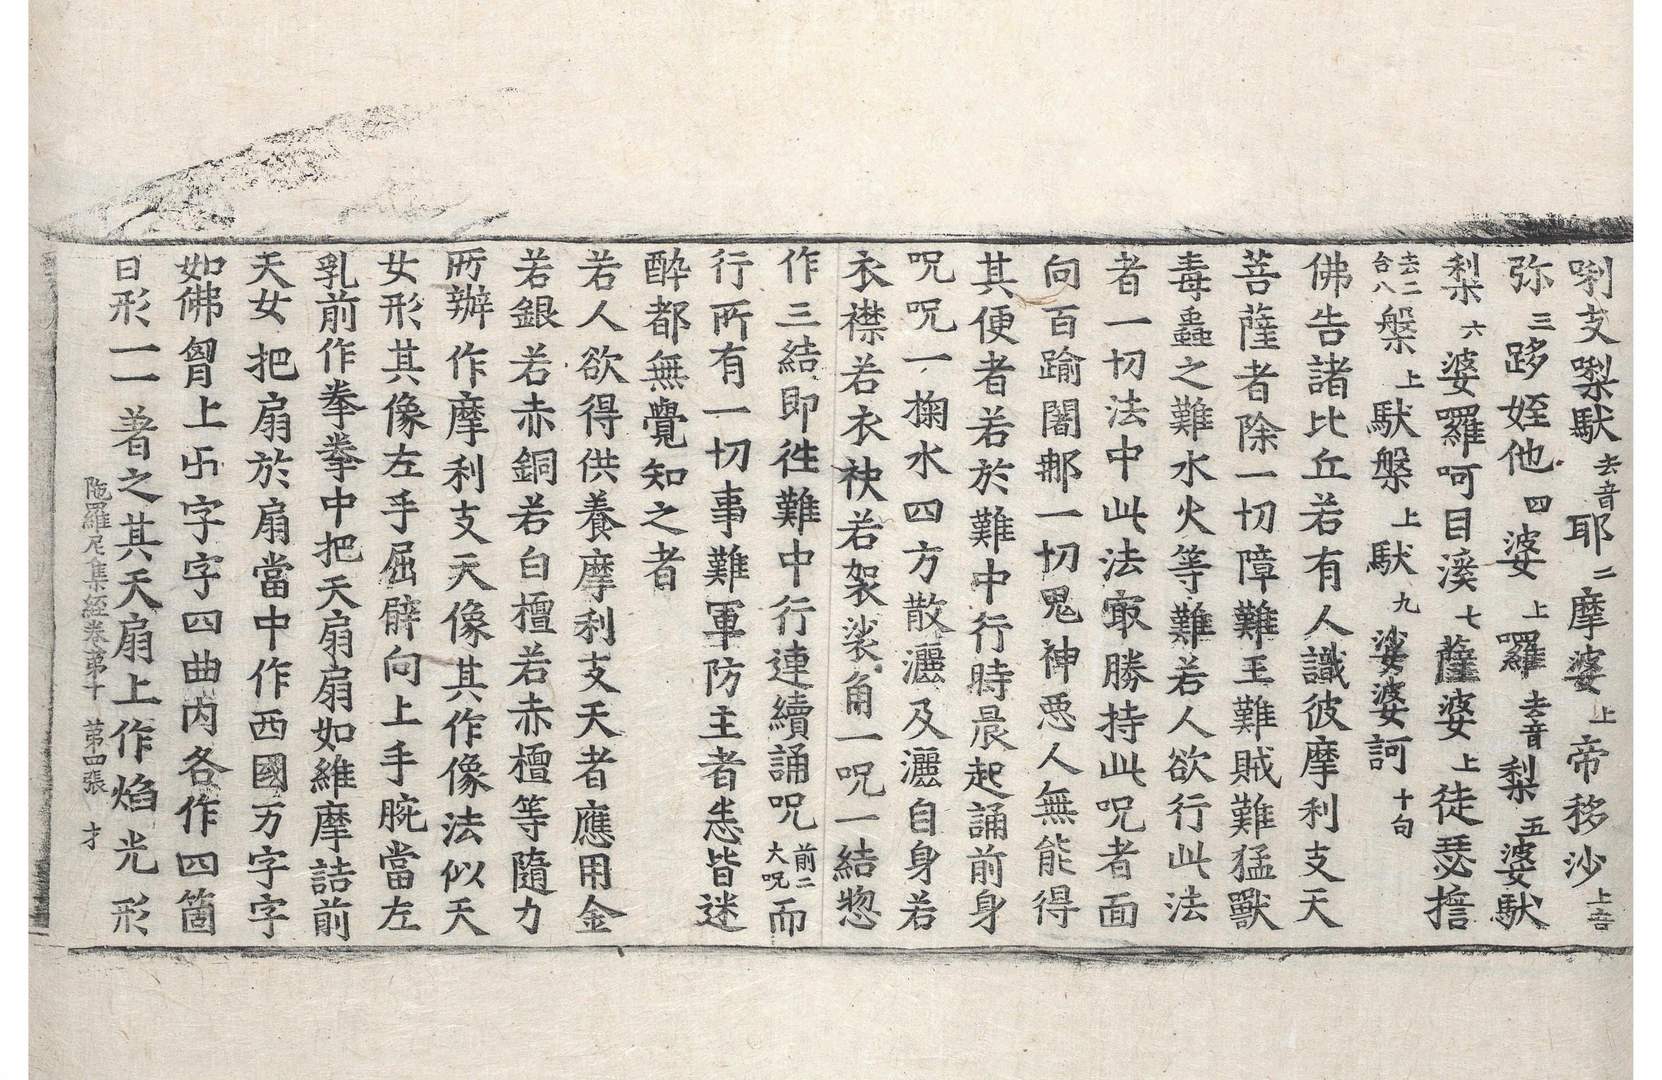 唎支㗚馱去音耶二摩婆上帝移沙上音
弥三跢姪他四婆上羅去音梨五婆馱
梨六婆羅呵目溪七薩婆上徒瑟擔
去二合八槃上馱槃上馱九娑婆訶十句
佛告諸比丘若有人識彼摩利支天
菩薩者除一切障難王難賊難猛獸
毒蟲之難水火等難若人欲行此法
者一切法中此法㝡勝持此呪者面
向百踰闍那一切鬼神惡人無能得
其便者若於難中行時晨起誦前身
呪呪一掬水四方散灑及灑自身若
衣襟若衣袂若袈裟角一呪一結惣
作三結即徃難中行連續誦呪前二大呪而
行所有一切事難軍防主者恙皆迷
醉都無覺知之者
若人欲得供養摩利支天者應用金
若銀若赤銅若白檀若赤檀等隨力
所辦作摩利支天像其作像法似天
女形其像左手屈臂向上手腕當左
乳前作拳拳中把天扇扇如維摩詰前
天女把扇於扇當中作西國万字字
如佛胷上卐字字四曲內各作四箇
日形一一著之其天扇上作焰光形
陁羅尼集經卷第十 第四張 才